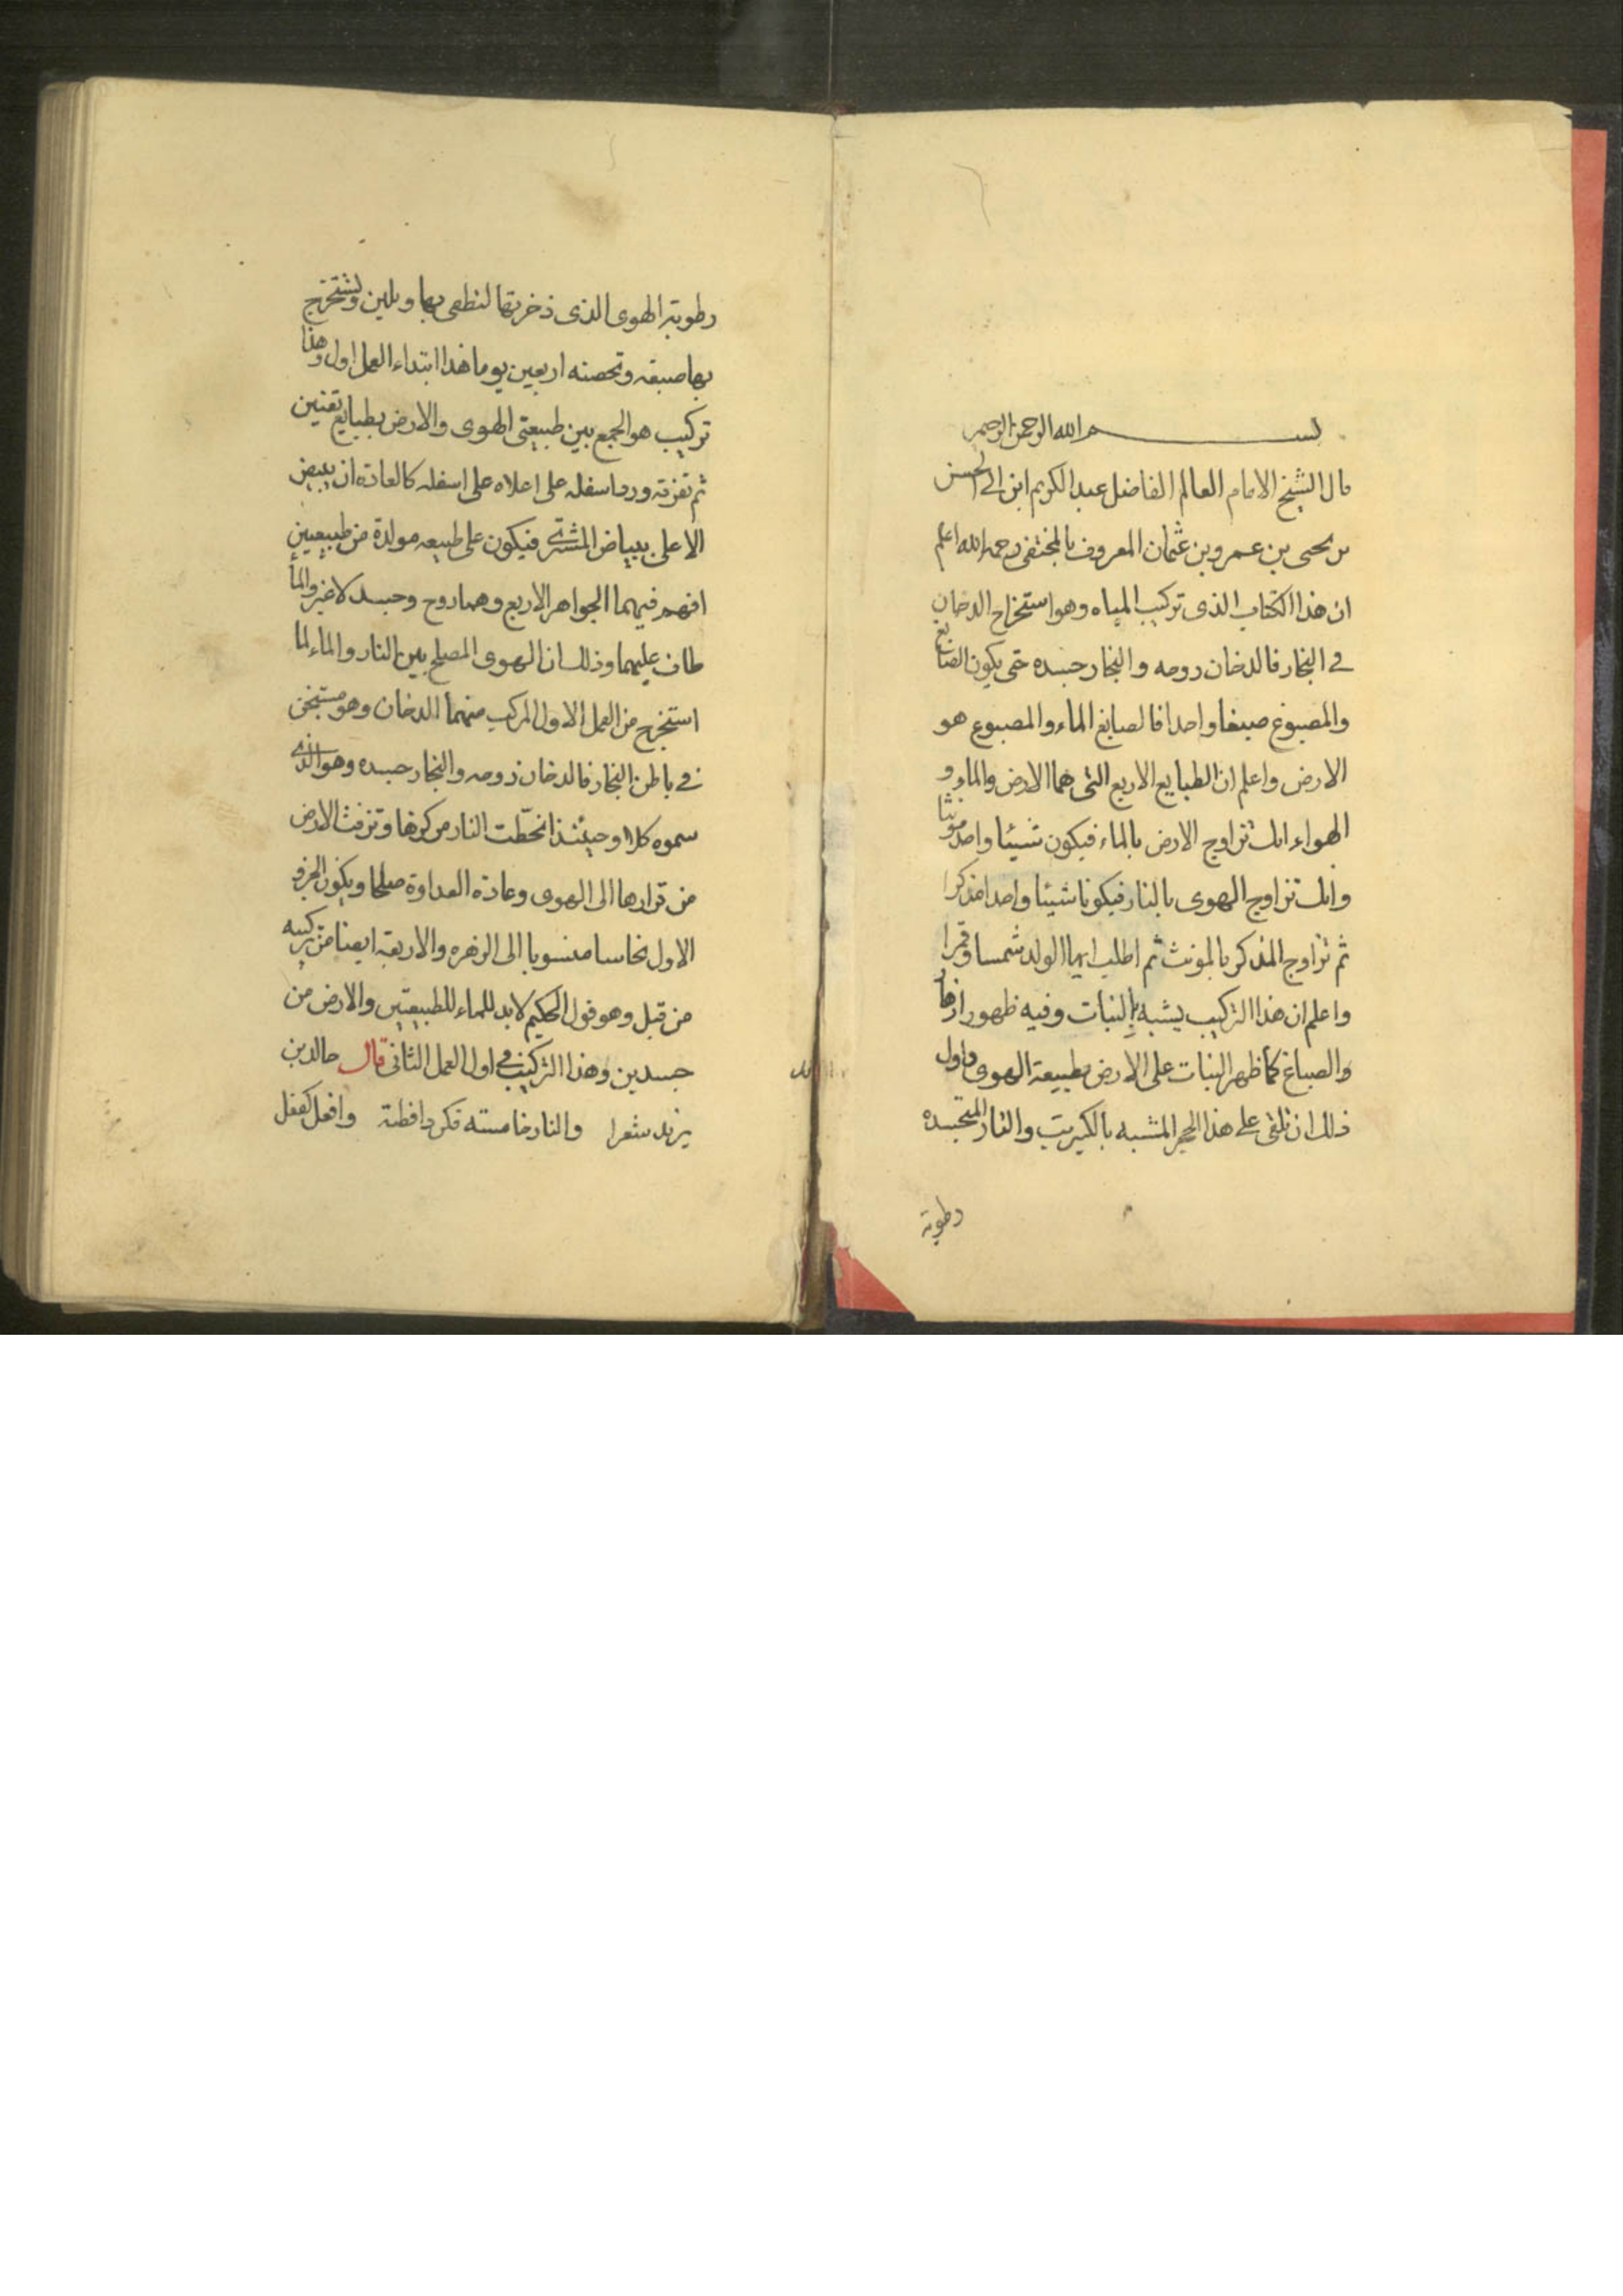 بسم الله الرحمن الرحيم
قال الشيخ الامام العالم الفاضل عبد الكريم ابن ابى الحسن
بن يحيى بن عمرو بن عثمان المعروف بالمختفى رحمه الله اعلم
ان هذا الكتاب الذى تركيب المياه وهو استخراج الدخان
فى البخار فالدخان روحه والبخار جسده حتى يكون الصابغ
والمصبوغ صبغا واحدا فالصابغ الماء والمصبوغ هو
الارض واعلم ان الطبايع الاربع التى هما الارض والماء و
الهواء انك تزاوج الارض بالماء فيكون شيئا واحد مونثا
وانك تزاوج الهوى بالنار فيكونا شيئا واحدا مذكرا
ثم تزاوج المذكر بالمونث ثم اطلب ايها الولد شمسا وقمرا
واعلم ان هذا التركيب يشبه بالنبات وفيه ظهور ازهار
والصباغ كما ظهر النبات على الارض بطبيعة الهوى واول
ذلك ان تلقى على هذا الحجر المشبه بالكبريت والنار المتجسده
رطوبة
رطوبة الهوى الذى ذخرتها لتطفى بها ويلين وتستخرج
بها صبغه وتحضنه اربعين يوما هذا ابتداء العمل اول وهذا
تركيب هو الجمع بين طبيعتى الهوى والارض بطبايع تقنين
ثم تفرقه ورد اسفله على اعلاه على اسفله كالعادة ان يبيض
الاعلى ببياض المشترى فيكون على طبيعه مولدة من طبيعيين
افهم فيهما الجواهر الاربع وهما روح وجسد لا غير والماء
طاف عليهما وذلك ان الهوى المصلح بين النار والماء لما
استخرج من العمل الاول المركب منهما الدخان وهو مستجن
فى باطن البخار فالدخان روحه والبخار جسده وهو الذى
سموه كلا وحينئذ انحطت النار من كرها وتزفت الارض
من قرارها الى الهوى وعادة العداوة صلحا ويكون الجزو
الاول نحاسا منسوبا الى الزهره والاربعة ايضا من تركيبه
من قبل وهو قول الحكيم لابد للماء للطبيعتين والارض من
جسدين وهذا التركيب فى اول العمل الثانى قال خالد بن
يزيد شعرا والنار خامسته فكن ذا فطنة وافعل كفعل